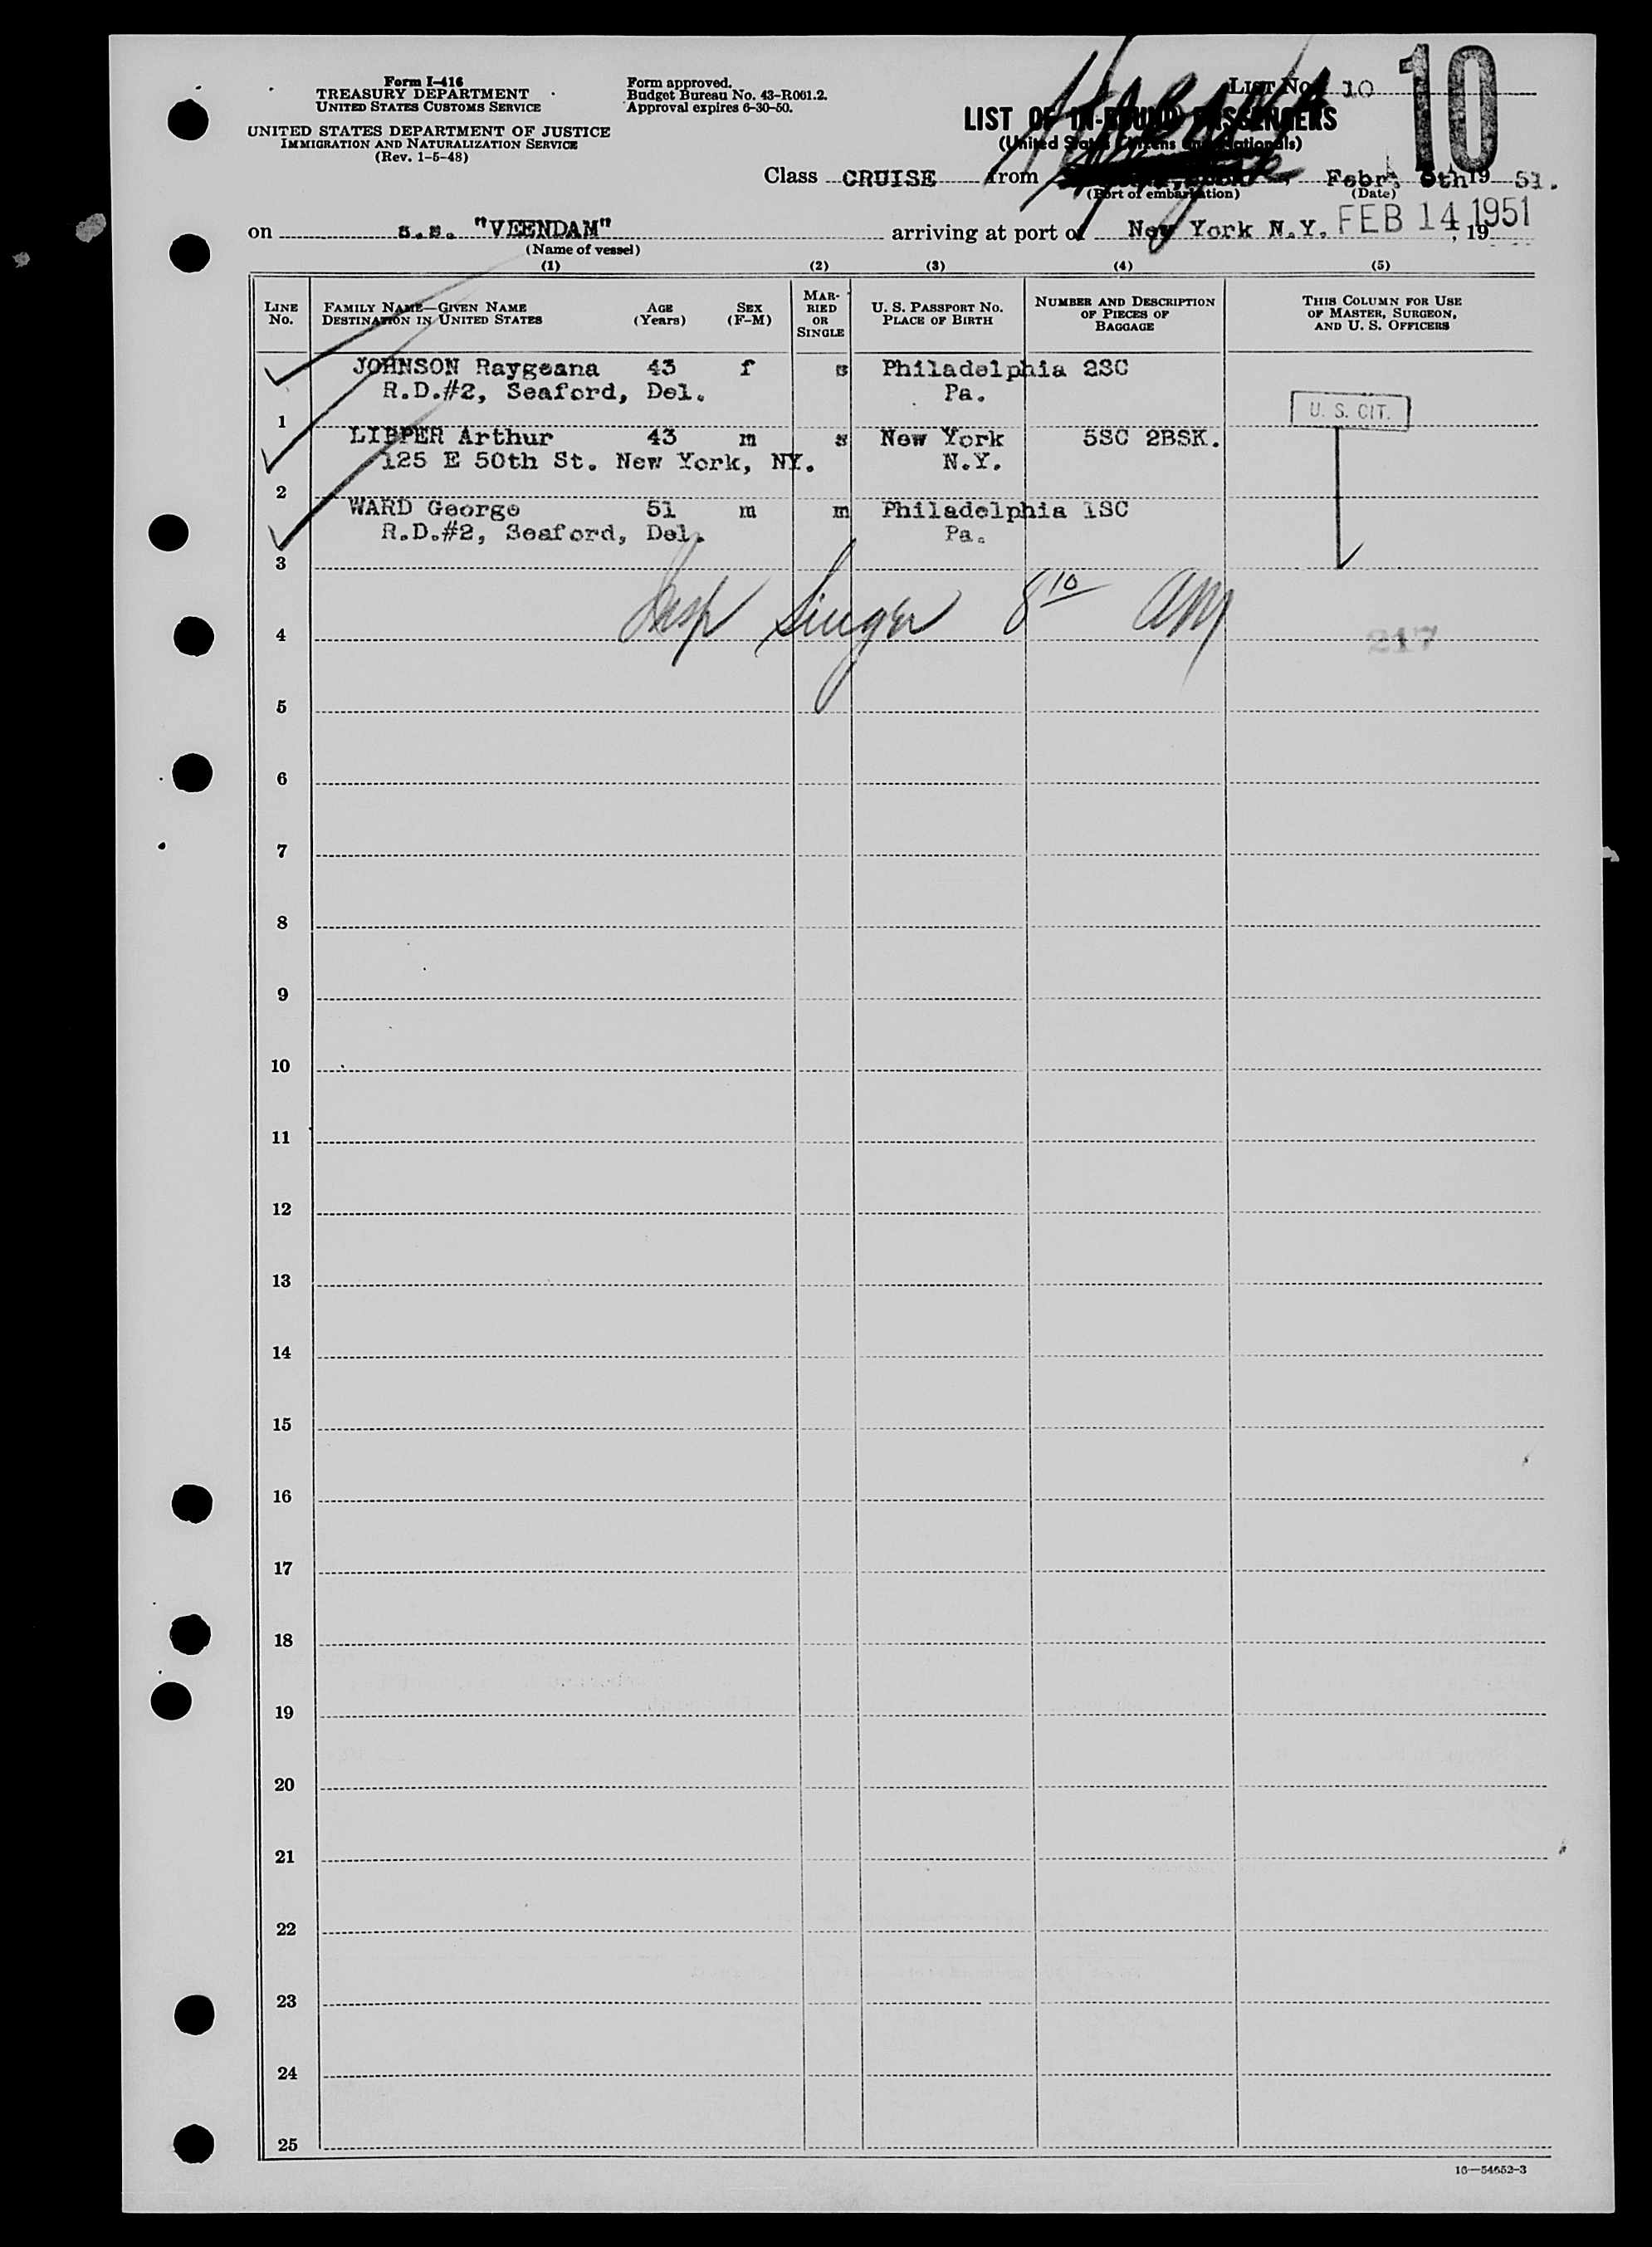 Form I-416
TREASURY DEPARTMENT
UNITED STATES CUSTOMS SERVICE
UNITED STATES DEPARTMENT OF JUSTICE
IMMIGRATION AND NATURALIZATION SERVICE
(Rev. 1-5-48)
Form approved.
Budget Bureau No. 43-R061.2.
Approval expires 6-30-50.
HABANA
LIST No. 10
10
LIST OF IN-BOUND PASSENGERS
(United States Citizens and Nationals)
Class CRUISE from , Febr. 19 51.
(Port of embarkation) (Date)
on s.s. "VEENDAM" arriving at port of New York N.Y. FEB 14 1951, 19
(Name of vessel)
(1) (2) (3) (4) (5)
LINE No. FAMILY NAME—GIVEN NAME DESTINATION IN UNITED STATES AGE (Years) SEX (F-M) MARRIED OR SINGLE U. S. PASSPORT NO. PLACE OF BIRTH NUMBER AND DESCRIPTION OF PIECES OF BAGGAGE THIS COLUMN FOR USE OF MASTER, SURGEON, AND U. S. OFFICERS
JOHNSON Raygeana 43 f s Philadelphia 2SC
R.D.#2, Seaford, Del. Pa.
U. S. CIT.
1
LIPPER Arthur 43 m s New York 5SC 2BSK.
125 E 50th St. New York, NY. N.Y.
2
WARD George 51 m m Philadelphia 1SC
R.D.#2, Seaford, Del. Pa.
3
Insp Singer 8 10 AM
4
217
5
6
7
8
9
10
11
12
13
14
15
16
17
18
19
20
21
22
23
24
25
16—54652-3